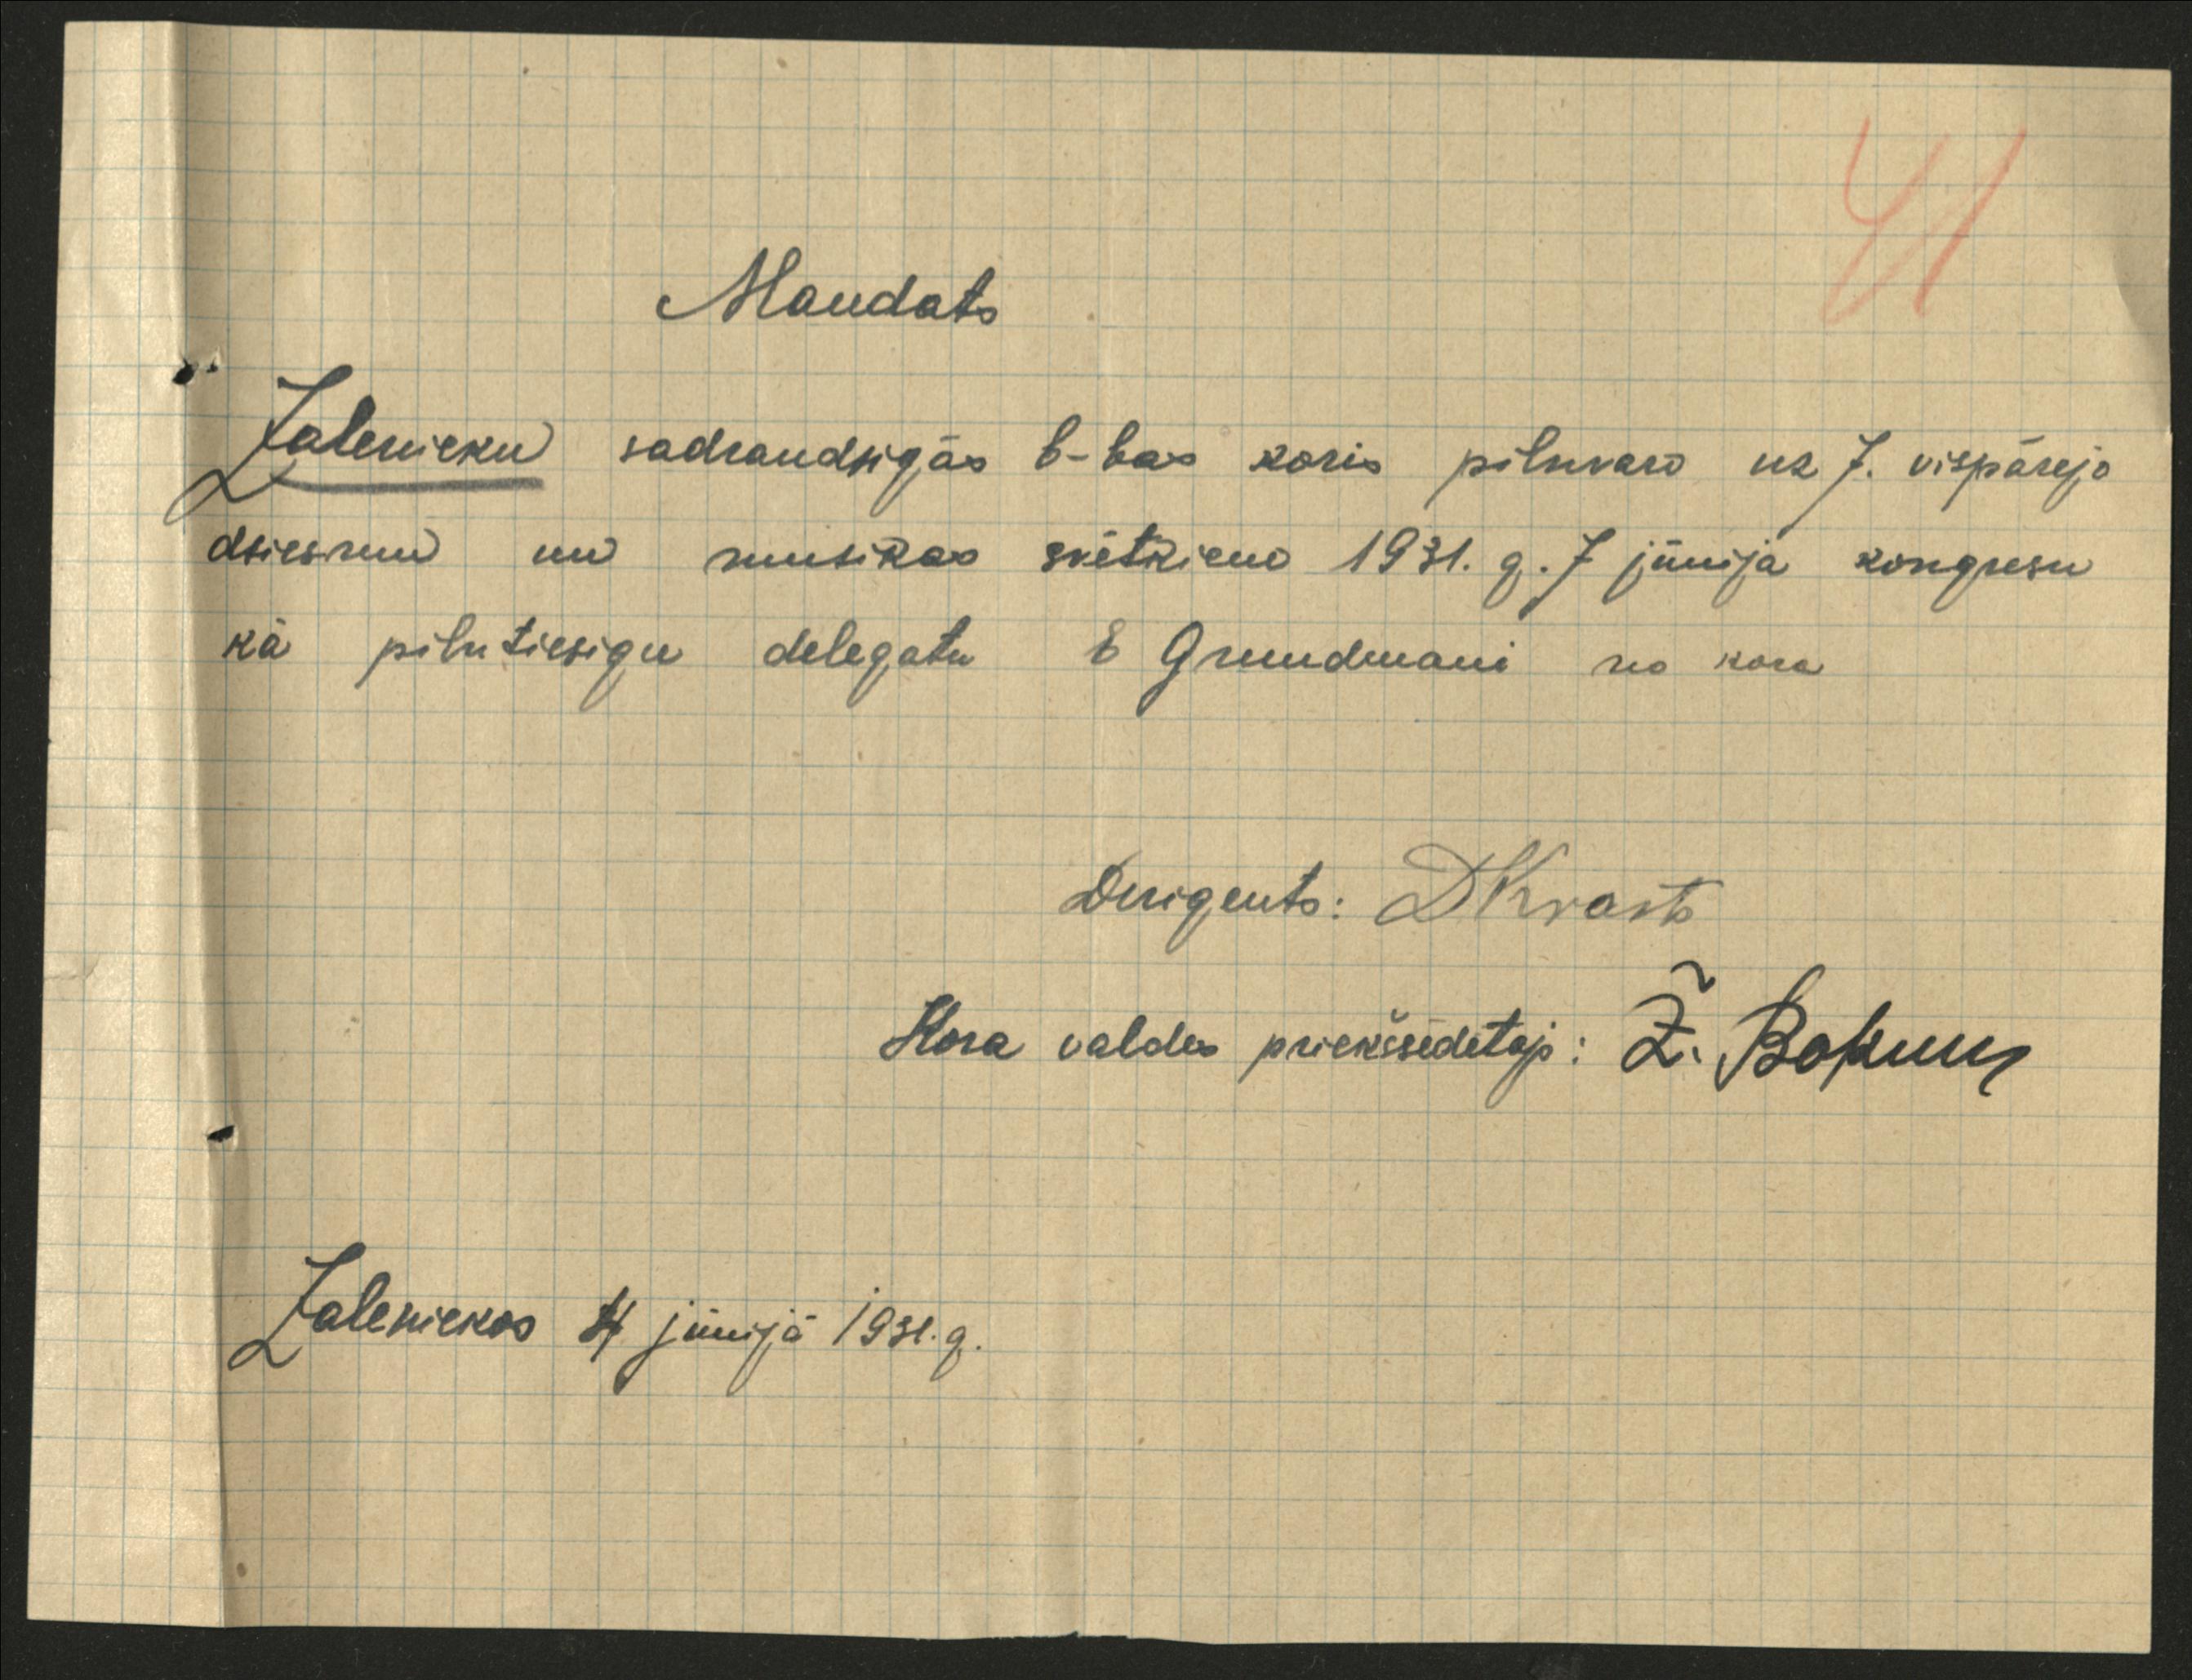 41
Mandats
Zalenieku sadraudsigās b-bas koris pilnvaro uz 7. vispārejo
dsiesmu un musikas svētkieno 1931. g. 7 jūnija kongresu
kā pilntiesigu delegatu E Grundmani no kora
Dirigents: DKrasts
Kora valdes priekšsēdetajs: Ž.
Zaleniekos 4 jūnijā 1931. g.